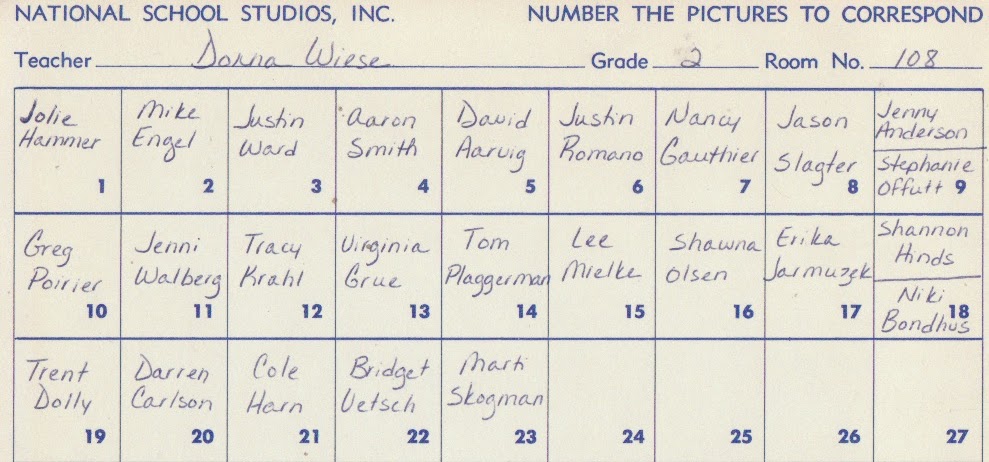 NATIONAL SCHOOL STUDIOS, INC. NUMBER THE PICTURES TO CORRESPOND
Teacher Donna Wiese Grade 2 Room No. 108
Jolie
Hammer
1
Mike
Engel
2
Justin
Ward
3
Aaron
Smith
4
David
Aarvig
5
Justin
Romano
6
Nancy
Gauthier
7
Jason
Slagter
8
Jenny
Anderson
Stephanie
Offutt 9
Greg
Poirier
10
Jenni
Walberg
11
Tracy
Krahl
12
Virginia
Grue
13
Tom
Plaggerman
14
Lee
Mielke
15
Shawna
Olsen
16
Erika
Jarmuzek
17
Shannon
Hinds
Niki 18
Bondhus
Trent
Dolly
19
Darren
Carlson
20
Cole
Harn
21
Bridget
Uetsch
22
Marti
Skogman
23
24
25
26
27